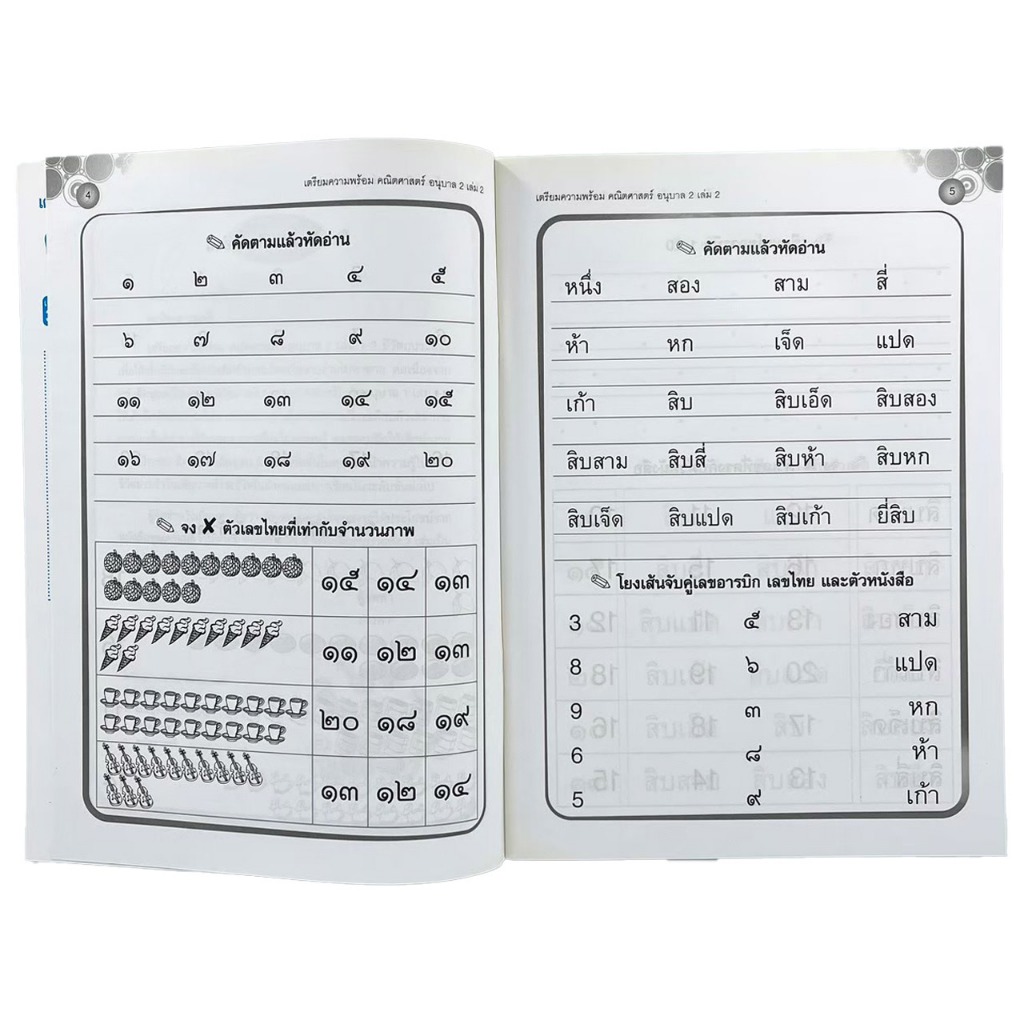 4
เตรียมความพร้อม คณิตศาสตร์ อนุบาล 2 เล่ม 2
คัดตามแล้วหัดอ่าน
๑ ๒ ๓ ๔ ๕
๖ ๗ ๘ ๙ ๑๐
๑๑ ๑๒ ๑๓ ๑๔ ๑๕
๑๖ ๑๗ ๑๘ ๑๙ ๒๐
จง ✘ ตัวเลขไทยที่เท่ากับจำนวนภาพ
๑๕ ๑๔ ๑๓
๑๑ ๑๒ ๑๓
๒๐ ๑๘ ๑๙
๑๓ ๑๒ ๑๔
เตรียมความพร้อม คณิตศาสตร์ อนุบาล 2 เล่ม 2
5
คัดตามแล้วหัดอ่าน
หนึ่ง สอง สาม สี่
ห้า หก เจ็ด แปด
เก้า สิบ สิบเอ็ด สิบสอง
สิบสาม สิบสี่ สิบห้า สิบหก
สิบเจ็ด สิบแปด สิบเก้า ยี่สิบ
โยงเส้นจับคู่เลขอารบิก เลขไทย และตัวหนังสือ
3 ๕ สาม
8 ๖ แปด
9 ๓ หก
6 ๘ ห้า
5 ๙ เก้า